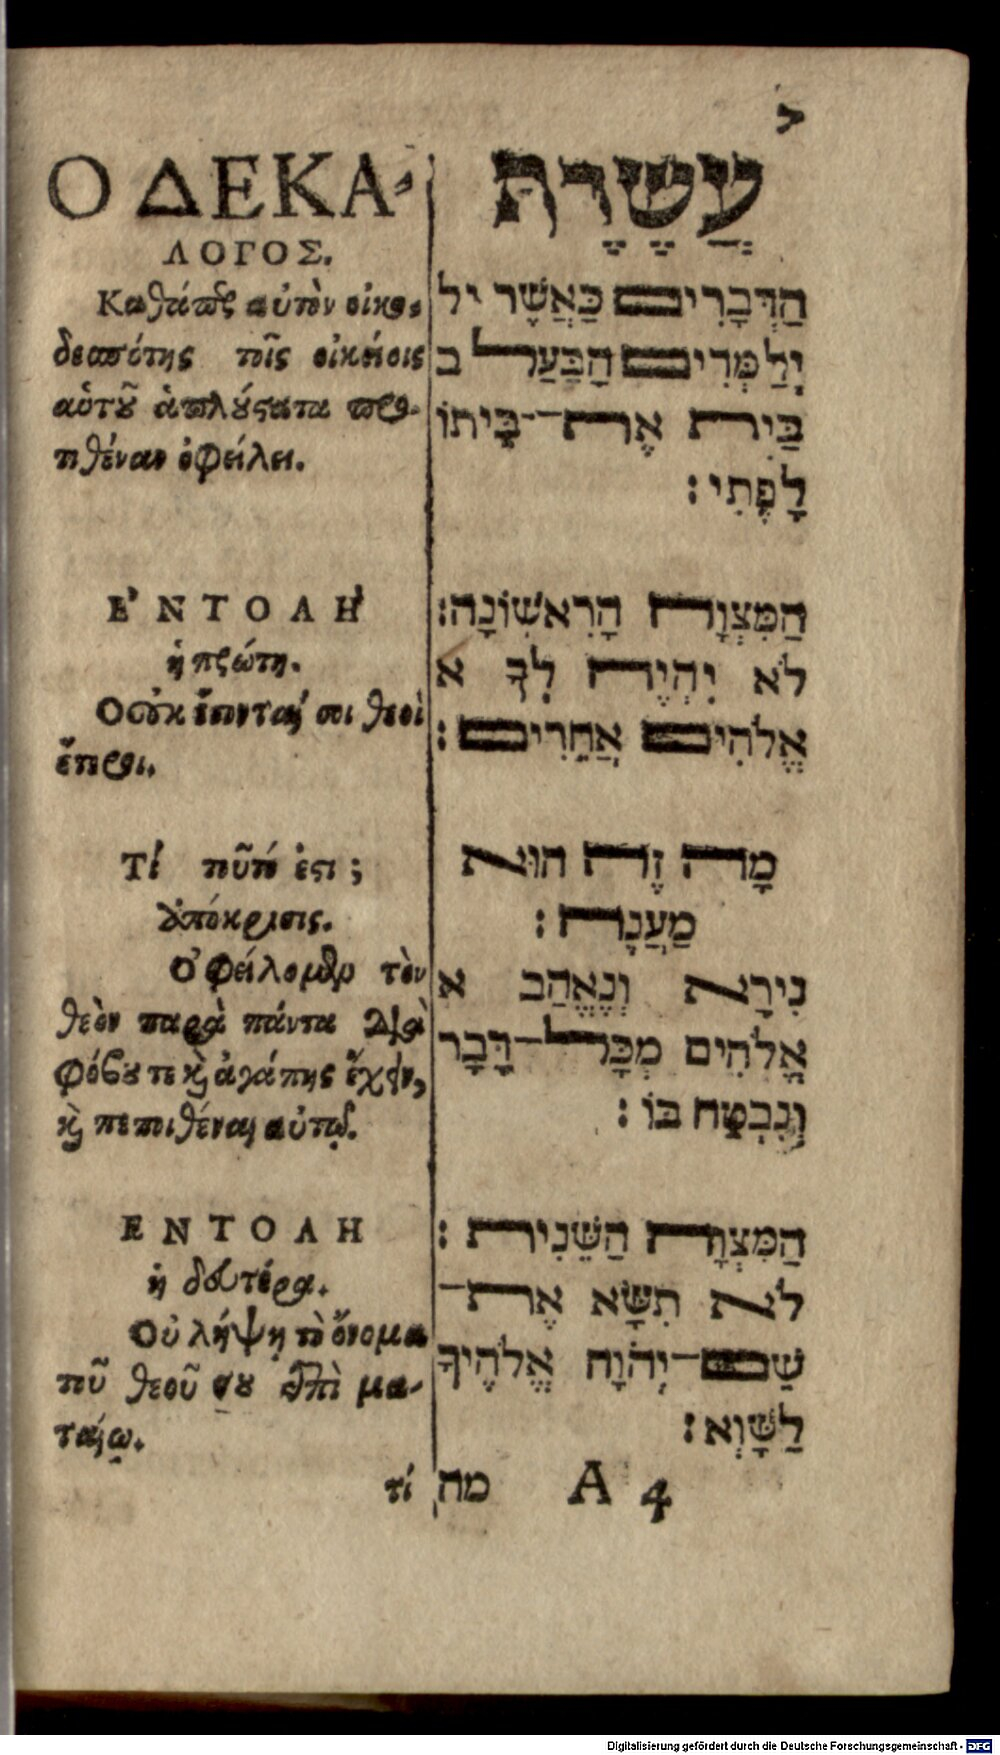 Ο ΔΕΚΑ-
ΛΟΓΟΣ.
Καθάπερ αὐτὸν οἰκο-
δεσπότης τοῖς οἰκείοις
αὑτοῦ ἁπλούστατα προ-
τιθέναι ὀφείλει.
ἘΝΤΟΛΗ
ἡ πρώτη.
Οὐκ ἔσονταί σοι θεοὶ
ἕτεροι.
Τί τοῦτό ἐστι;
ὑπόκρισις.
Ὀφείλομεν τὸν
θεὸν παρὰ πάντα διὰ
φόβου τε καὶ ἀγάπης ἔχειν,
καὶ πεποιθέναι αὐτῷ.
ΕΝΤΟΛΗ
ἡ δευτέρα.
Οὐ λήψῃ τὸ ὄνομα
τοῦ θεοῦ σου ἐπὶ μα-
ταίῳ.
τί
עֲשֶׂרֶת
הַדְּבָרִים כַּאֲשֶׁר יל
יְלַמְּדִים הַבַּעַל ב
בַּיִת אֶת־בֵּיתוֹ
לָפֶּתִי׃
הַמִּצְוָה הָרִאשׁוֹנָה׃
לֹא יִהְיֶה לְךָ א
אֱלֹהִים אֲחֵרִים׃
מָה זֶה הוּא
מַעֲנֶה׃
נִירָא וְנֶאֱהַב א
אֱלֹהִים מִכָּל־דָּבָר
וְנִבְטַח בּוֹ׃
הַמִּצְוָה הַשֵּׁנִית׃
לֹא תִשָּׂא אֶת־
שֵׁם־יְהֹוָה אֱלֹהֶיךָ
לַשָּׁוְא׃
מה
A 4